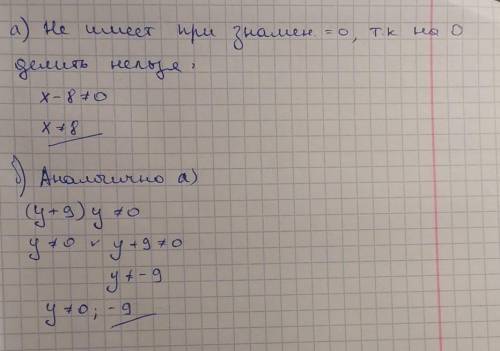 а) Не имеет при знамен. = 0, т.к на 0
делить нельзя:
x - 8 ≠ 0
x ≠ 8
б) Аналогично а)
(y + 9) y ≠ 0
y ≠ 0 v y + 9 ≠ 0
y ≠ -9
y ≠ 0; -9